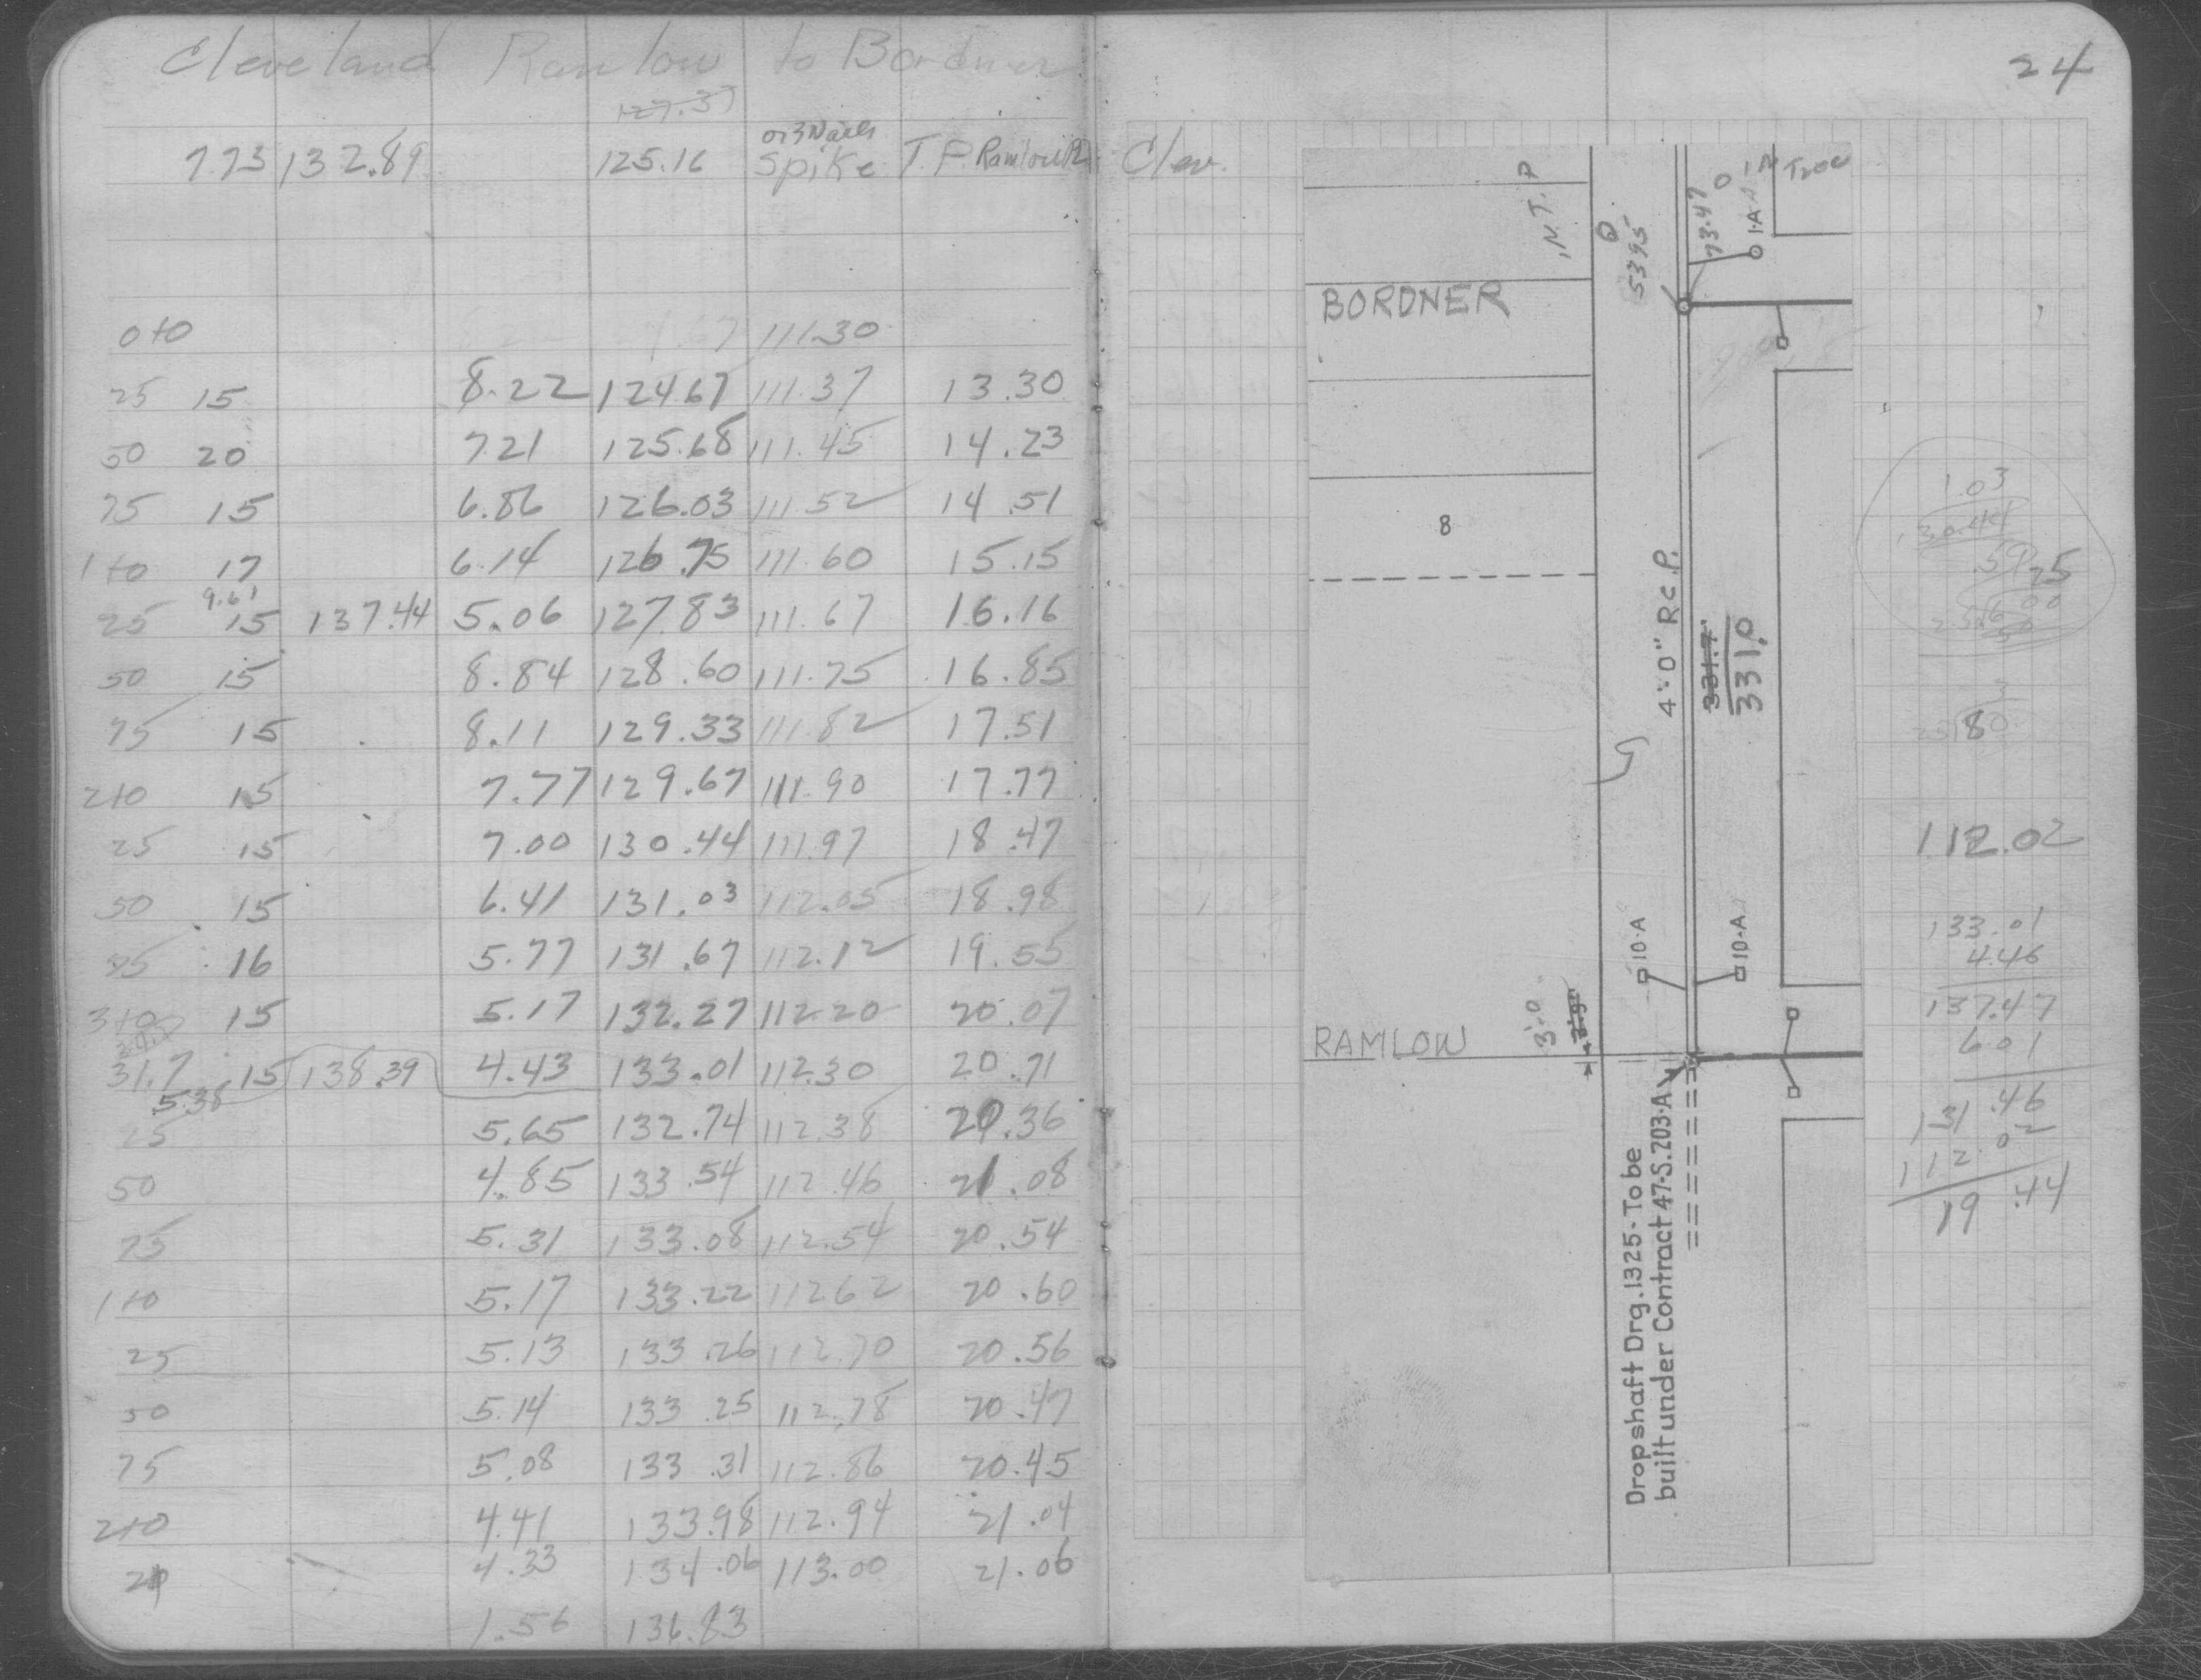 Cleveland Ramlow to Bordner
127.37
7.73 132.89 125.16 or 3 Nails Spike T.P. Ramlow
0+0 111.30
25 15 8.22 124.67 111.37 13.30
50 20 7.21 125.68 111.45 14.23
75 15 6.86 126.03 111.52 14.51
1+0 17 6.14 126.75 111.60 15.15
9.61
25 15 137.44 5.06 127.83 111.67 16.16
50 15 8.84 128.60 111.75 16.85
75 15 8.11 129.33 111.82 17.51
2+0 15 7.77 129.67 111.90 17.77
25 15 7.00 130.44 111.97 18.47
50 15 6.41 131.03 112.05 18.98
75 16 5.77 131.67 112.12 19.55
3+0 15 5.17 132.27 112.20 20.07
31.7 15 138.39 4.43 133.01 112.30 20.71
5.38
25 5.65 132.74 112.38 20.36
50 4.85 133.54 112.46 21.08
75 5.31 133.08 112.54 20.54
1+0 5.17 133.22 112.62 20.60
25 5.13 133.26 112.70 20.56
50 5.14 133.25 112.78 20.47
75 5.08 133.31 112.86 20.45
2+0 4.41 133.98 112.94 21.04
21 4.33 134.06 113.00 21.06
1.56 136.83
24
Clev.
N.T.P
5395
73.47
1-A
1N Tree
BORDNER
8
4'-0" R.C.P.
331.7'
331.0
10-A
10-A
3'-0
RAMLOW
Dropshaft Drg. 1325 - To be
built under Contract 47-S.203-A
1.03
130.44
.59
25
3
25 80
112.02
133.01
4.46
137.47
6.01
131.46
112.02
19.44